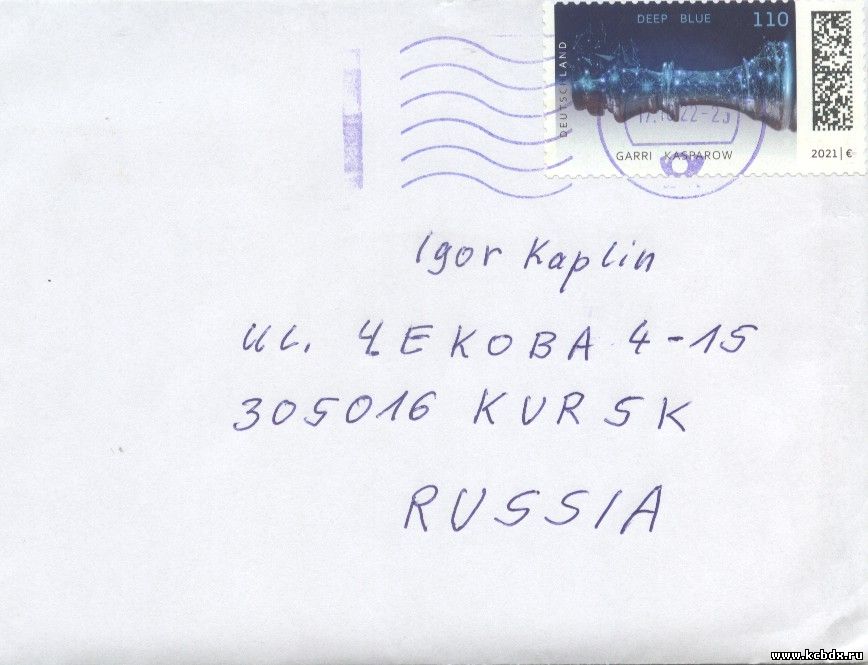 DEEP BLUE 110
DEUTSCHLAND
GARRI KASPAROW 2021 | €
Igor Kaplin
ul. ЧЕКОВА 4-15
305016 KURSK
RUSSIA
www.kcbdx.ru